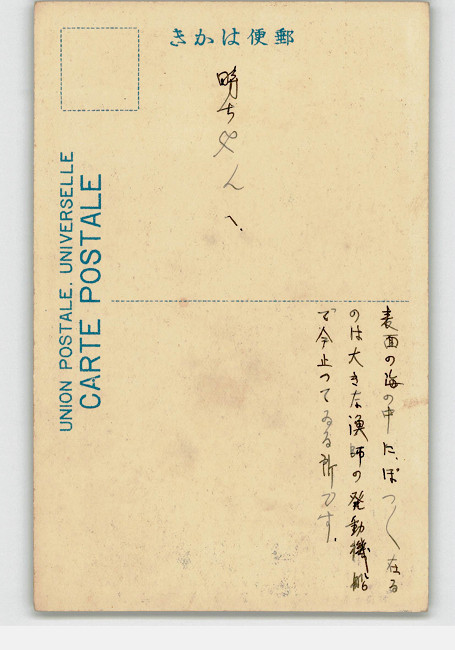 郵便はかき
明ちゃんへ、
表面の海の中に、ぽつ〱在る
のは大きな漁師の発動機船
で今止つてゐる所です。
UNION POSTALE, UNIVERSELLE
CARTE POSTALE